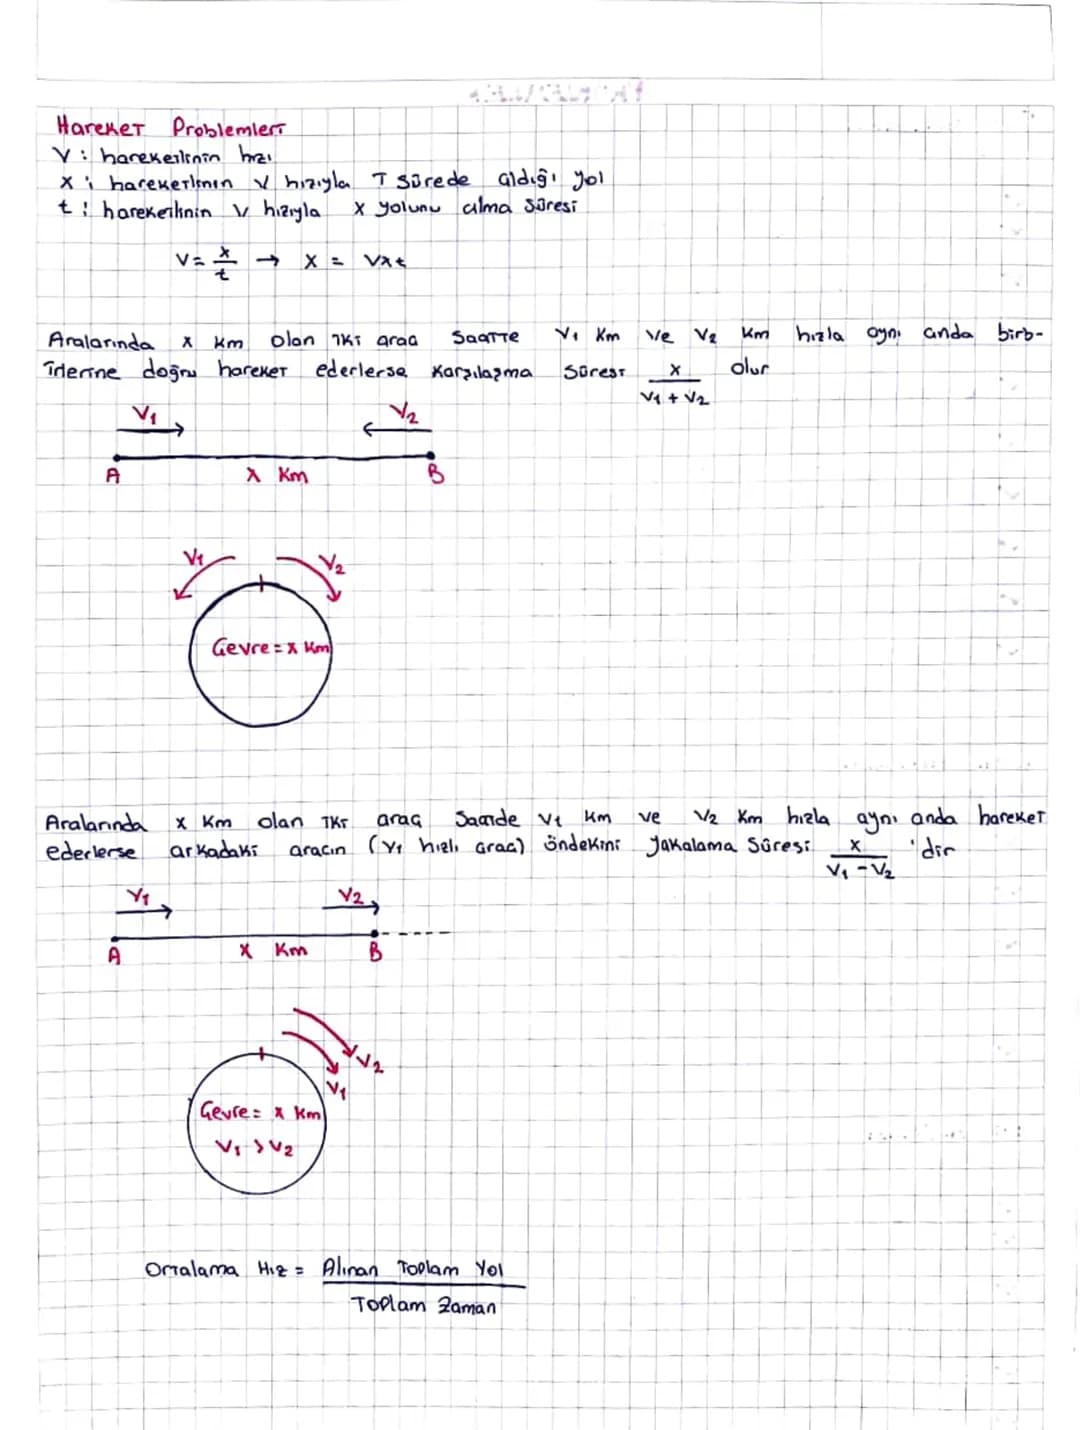 Hareket Problemleri
V : hareketlinin hızı
x : hareketlinin V hızıyla T sürede aldığı yol
t : hareketlinin V hızıyla x yolunu alma süresi
V = x/t → x = Vxt
Aralarında x km olan iki araç saatte V₁ km ve V₂ km hızla aynı anda birb-
irlerine doğru hareket ederlerse karşılaşma süresi x/(V₁ + V₂) olur
V₁ V₂
A x km B
V₁ V₂
Çevre = x km
Aralarında x km olan iki araç saatde V₁ km ve V₂ km hızla aynı anda hareket
ederlerse arkadaki aracın (V₁ hızlı araç) öndekini yakalama süresi x/(V₁ - V₂) 'dir
V₁ V₂
A x km B
V₂
V₁
Çevre = x km
V₁ > V₂
Ortalama Hız = Alınan Toplam Yol
Toplam Zaman